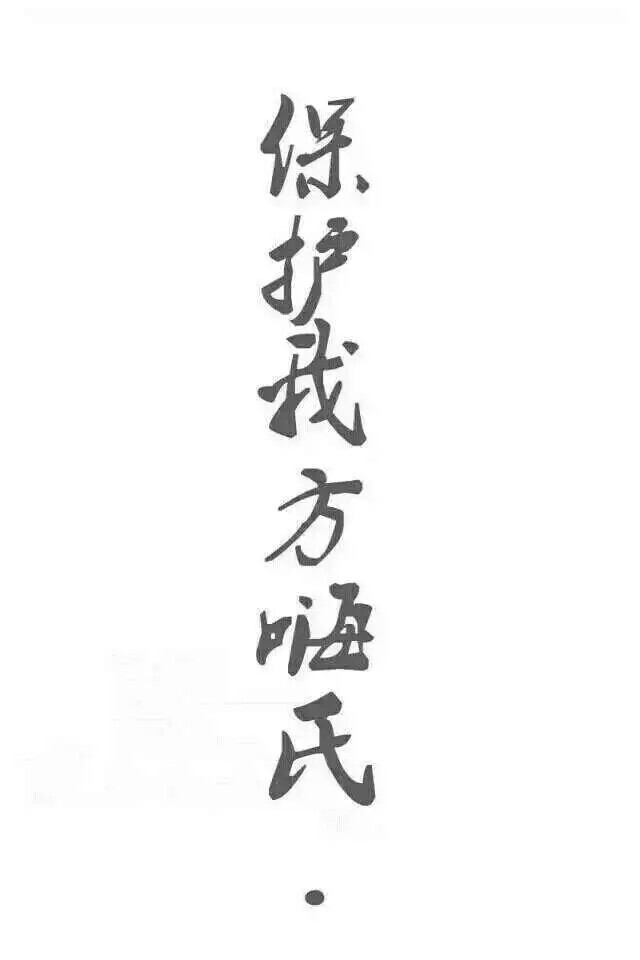 保护我方嗨氏